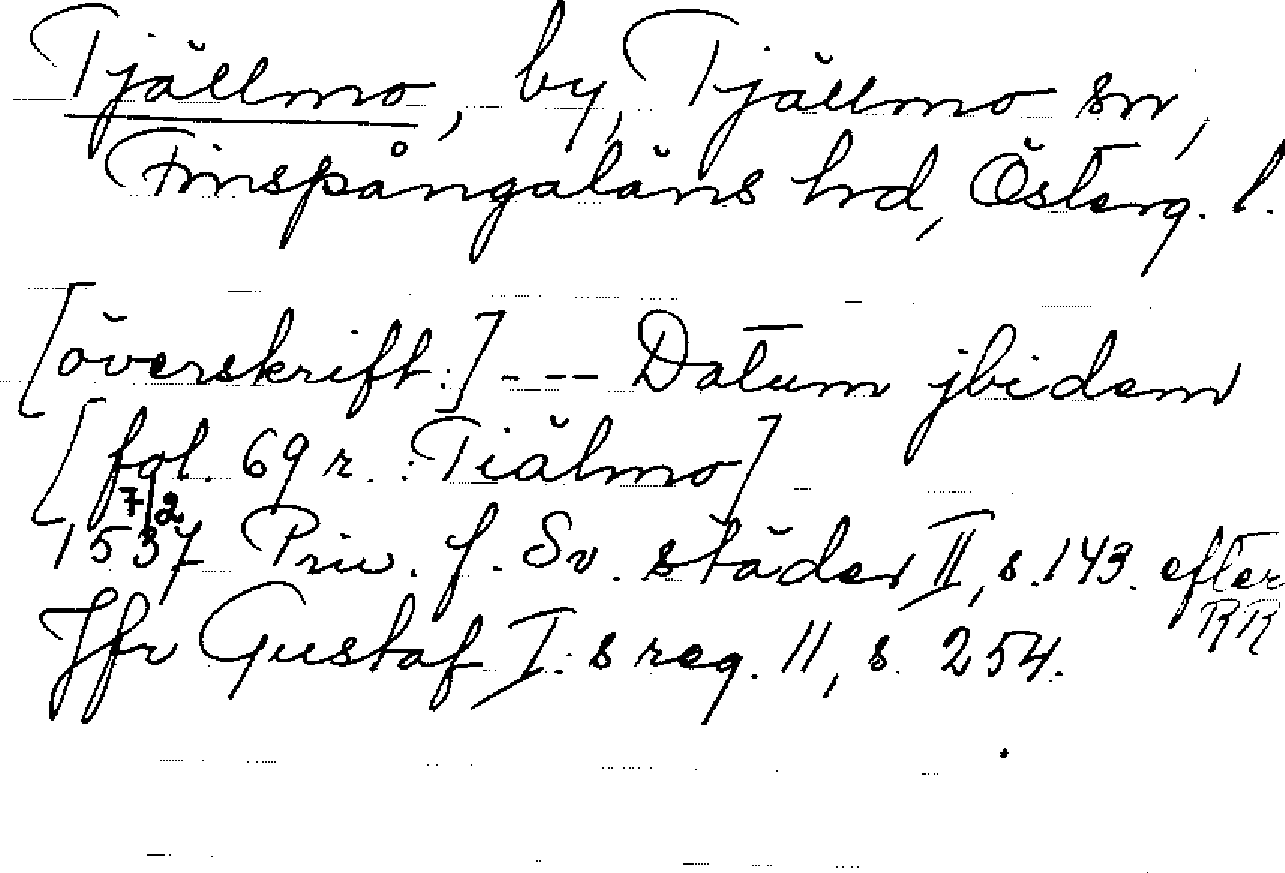 Tjällmo, by, Tjällmo sn,
Finspångaläns hrd, Österg. l.
[överskrift:] --- Datum jbidem
[fol. 69 r. : Tiälmo]
7/2
1537 Priv. f. Sv. städer II, s. 143. efter
RR
Jfr Gustaf I:s reg. 11, s. 254.